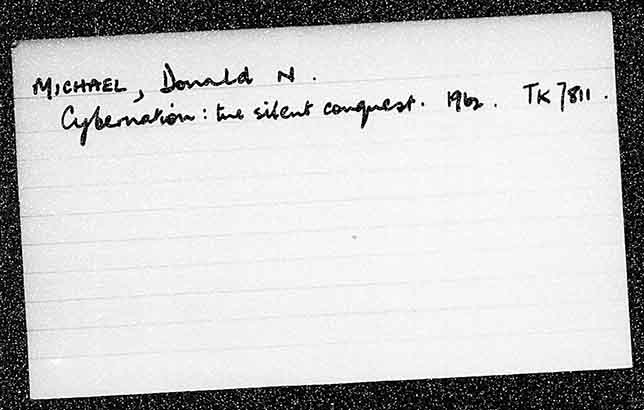 MICHAEL, Donald N.
Cybernation: the silent conquest. 1962. TK 7811.